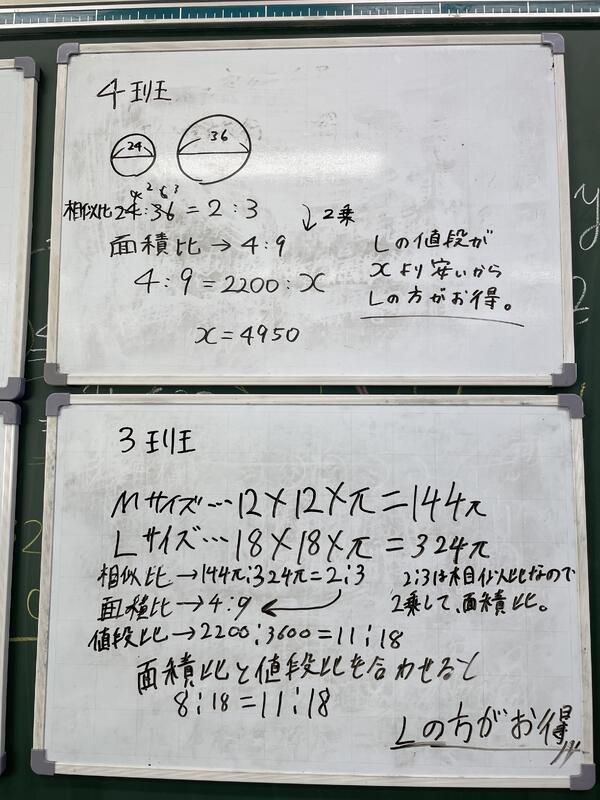 4班
24
36
相似比 24:36 = 2:3
2乗
面積比 → 4:9
4:9 = 2200:x
x = 4950
Lの値段が
xより安いから
Lの方がお得。
3班
Mサイズ…12×12×π=144π
Lサイズ…18×18×π=324π
相似比→144π:324π=2:3
面積比→4:9
2:3は相似比なので
2乗して、面積比。
値段比→2200:3600=11:18
面積比と値段比を合わせると
8:18=11:18
Lの方がお得